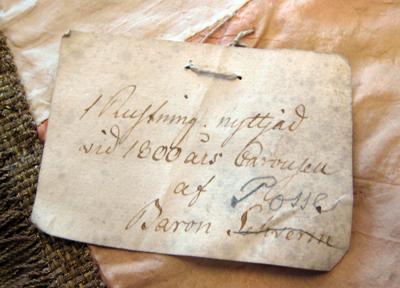 1 Rustning. nyttjad
vid 1800 års Carousen
af Posse
Baron